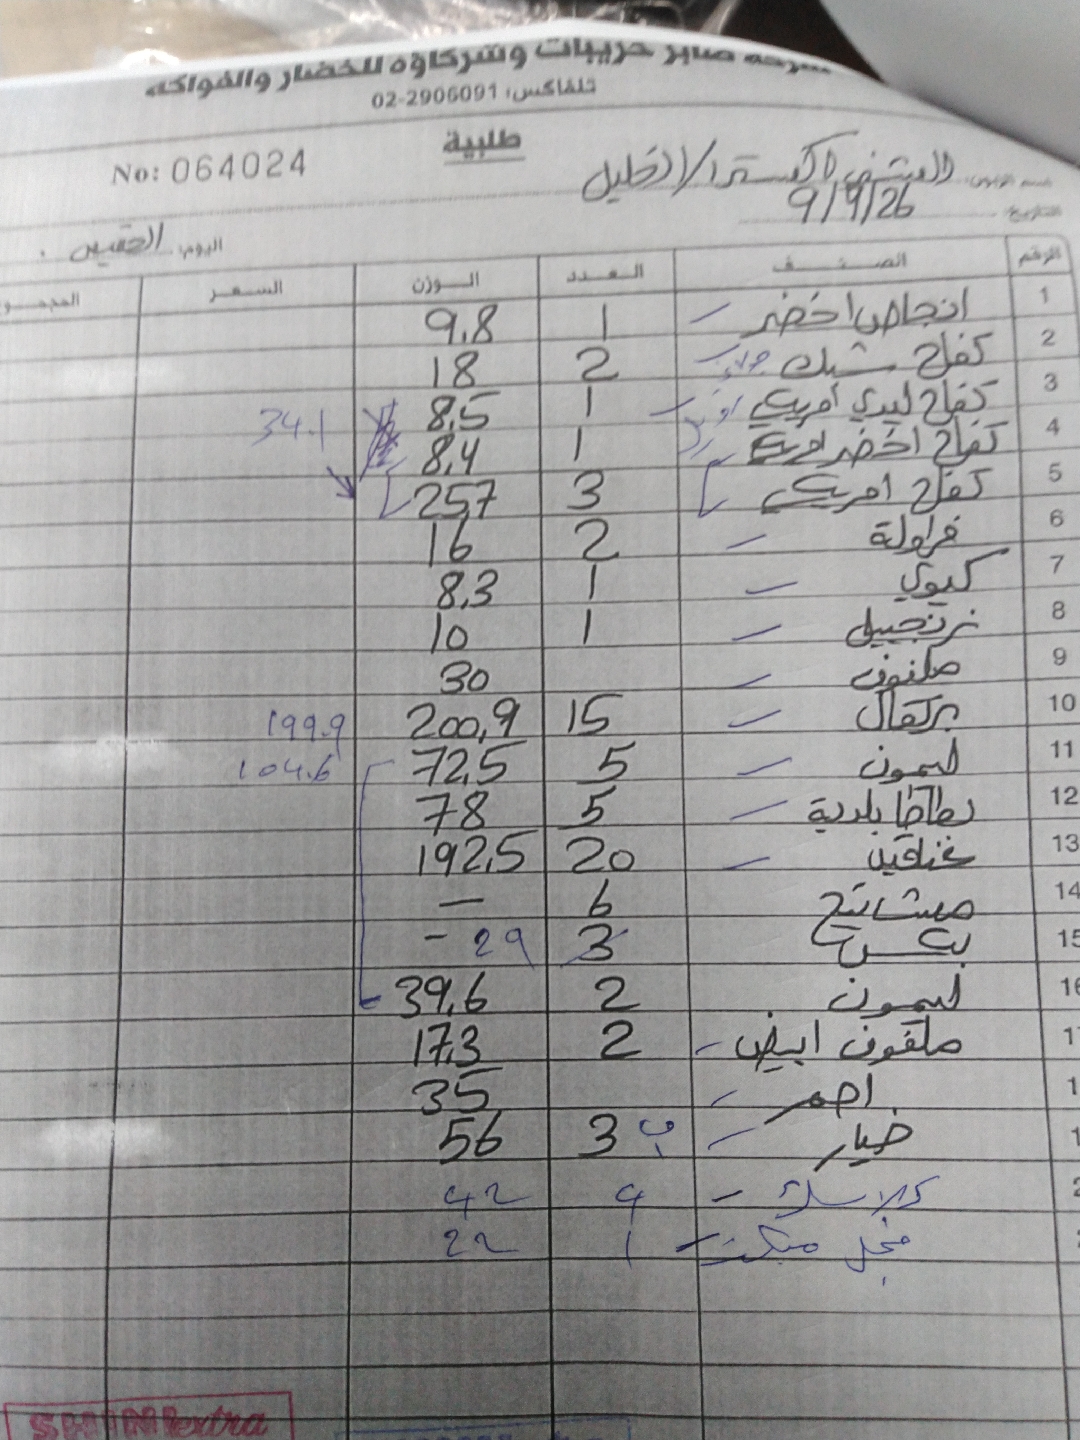 شركة صابر حريبات وشركاؤه للخضار والفواكه
تلفاكس: 02-2906091
طلبية
No: 064024
الشني اكسترا/الخليل
التاريخ: 9/9/26
اليوم:
الرقم الصنف العدد الوزن السعر
1 انجاص اخضر 1 9.8
2 تفاح شبك 2 18
3 تفاح ليدي امريكي 1 8,5
4 تفاح اخضر امريكي 1 8,4 34.1
5 تفاح امريكي 3 25,7
6 فراولة 2 16
7 كيوي 1 8,3
8 زنجبيل 1 10
9 ملفوف 30
10 برتقال 15 200,9 199.9
11 ليمون 5 72,5 104.6
12 بطاطا بلدية 5 78
13 20 192,5
14 6 —
15 3 - 29
16 ليمون 2 39,6
17 ملفوف ابيض 2 17,3
1 احمر 35
1 خيار 3 ب 56
2 42
فجل 1 22
SHINI extra